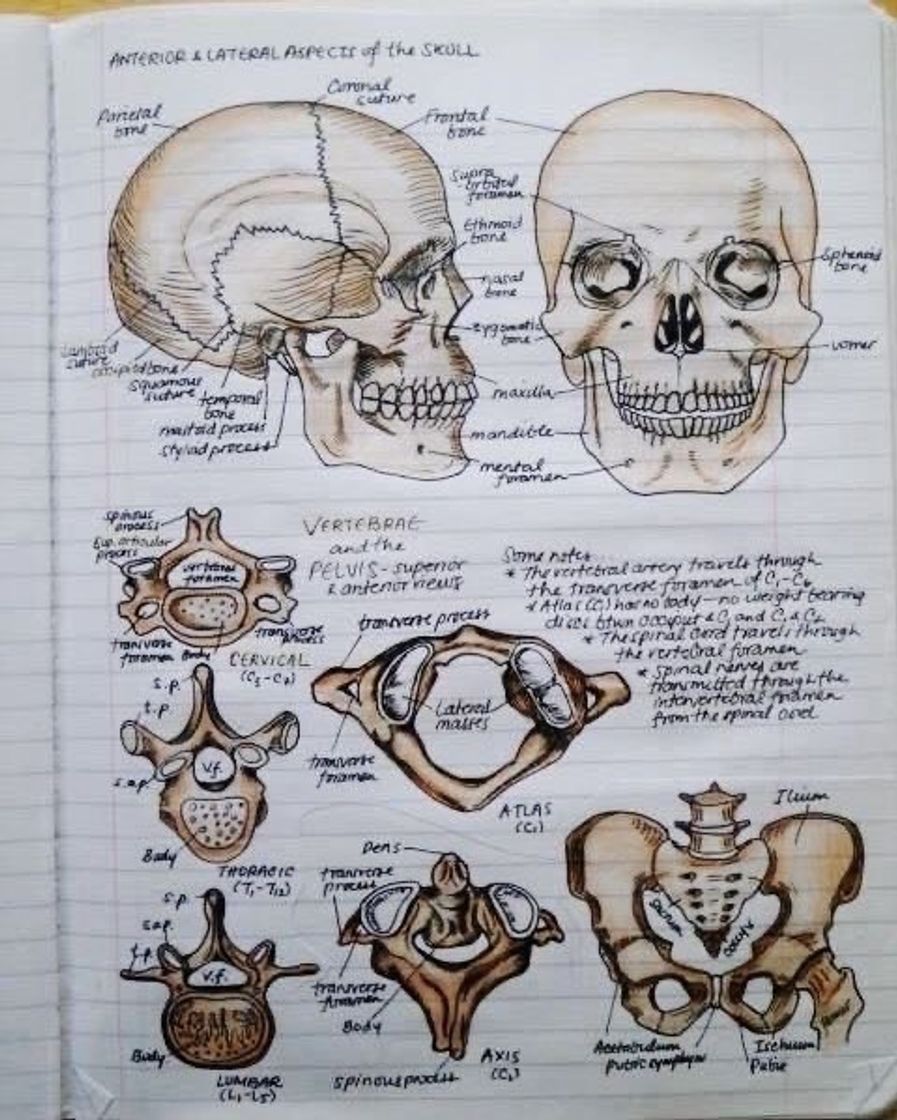 ANTERIOR & LATERAL ASPECTS of the SKULL
Coronal
suture
Parietal
bone
Frontal
bone
Supra
orbital
foramen
Ethmoid
bone
Sphenoid
bone
nasal
bone
zygomatic
bone
vomer
Lamboid
suture
occipital bone
squamous
suture
temporal
bone
mastoid process
styloid process
maxilla
mandible
mental
foramen
spinous
process
Sup. articular
process
vertebral
foramen
transverse
foramen
Body
transverse
process
CERVICAL
VERTEBRAE
and the
PELVIS - superior
& anterior views
Some notes
* The vertebral artery travels through
the transverse foramen of C1-C6
* Atlas (C1) has no body - no weight bearing
discs btwn occiput & C1 and C1 & C2
* The spinal cord travels through
the vertebral foramen
* spinal nerves are
transmitted through the
intervertebral foramen
from the spinal cord
transverse process
Lateral
masses
transverse
foramen
ATLAS
(C1)
s.p.
t.p.
v.f.
s.a.p.
Body
THORACIC
(T1-T12)
Dens
transverse
process
transverse
foramen
Body
spinous process
AXIS
s.p.
s.a.p.
t.p.
v.f.
Body
LUMBAR
(L1-L5)
Ilium
sacrum
coccyx
Acetabulum
pubic symphysis
Ischium
Pubis
femur